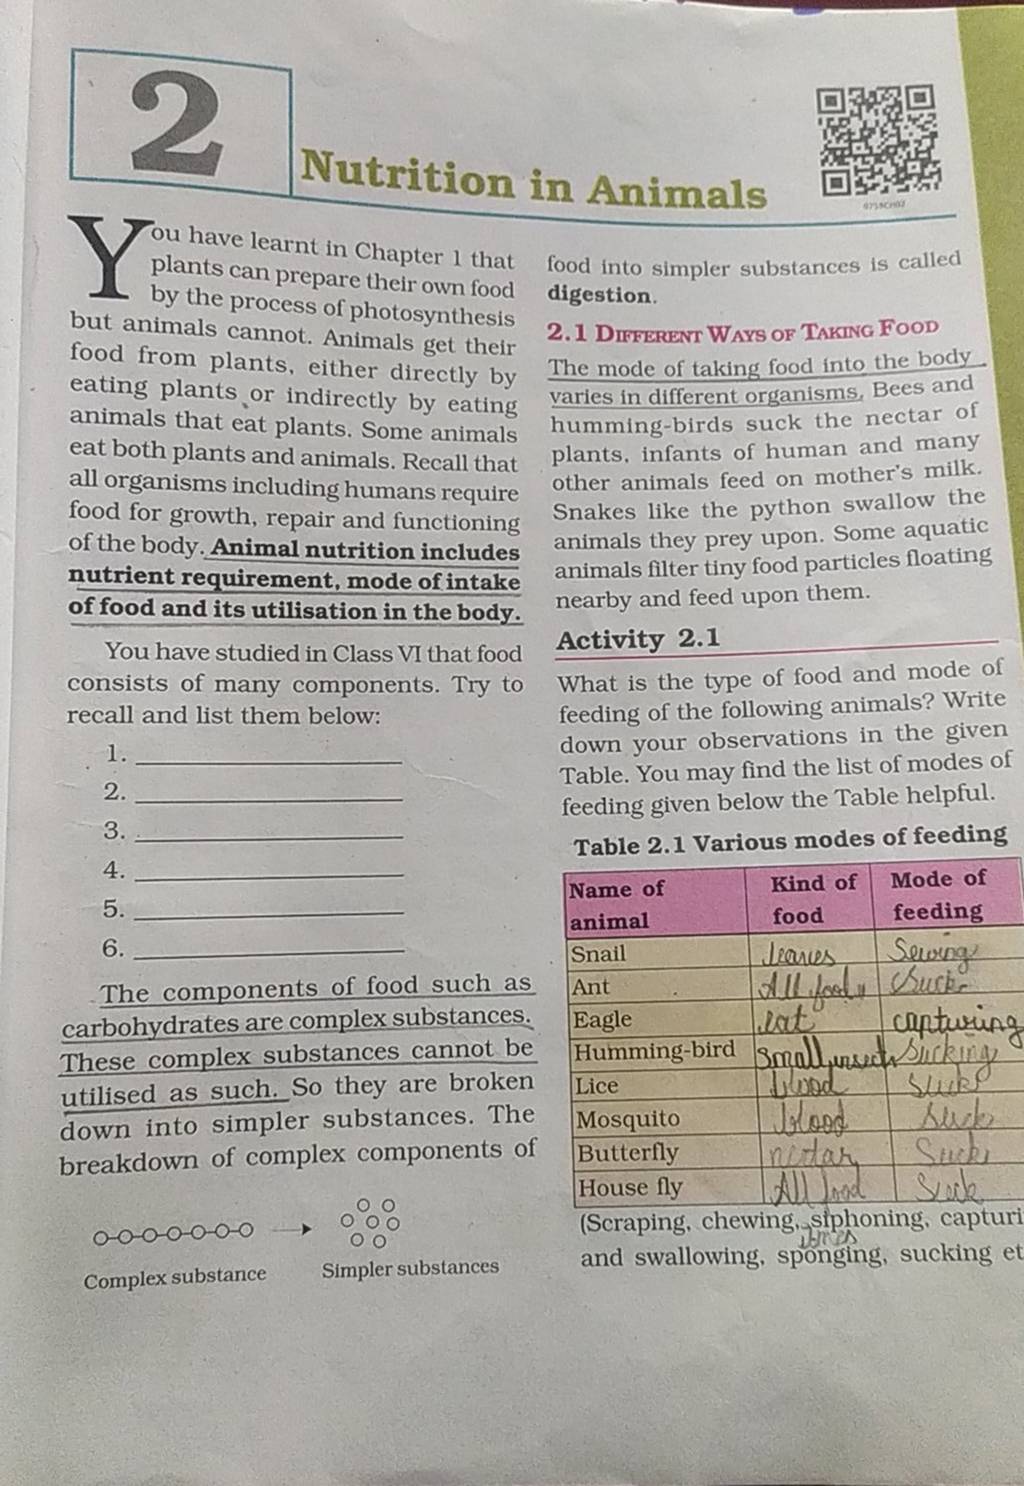 2
Nutrition in Animals
0758CH02
You have learnt in Chapter 1 that
plants can prepare their own food
by the process of photosynthesis
but animals cannot. Animals get their
food from plants, either directly by
eating plants or indirectly by eating
animals that eat plants. Some animals
eat both plants and animals. Recall that
all organisms including humans require
food for growth, repair and functioning
of the body. Animal nutrition includes
nutrient requirement, mode of intake
of food and its utilisation in the body.
You have studied in Class VI that food
consists of many components. Try to
recall and list them below:
1.
2.
3.
4.
5.
6.
The components of food such as
carbohydrates are complex substances.
These complex substances cannot be
utilised as such. So they are broken
down into simpler substances. The
breakdown of complex components of
Complex substance
Simpler substances
food into simpler substances is called
digestion.
2.1 DIFFERENT WAYS OF TAKING FOOD
The mode of taking food into the body
varies in different organisms. Bees and
humming-birds suck the nectar of
plants, infants of human and many
other animals feed on mother's milk.
Snakes like the python swallow the
animals they prey upon. Some aquatic
animals filter tiny food particles floating
nearby and feed upon them.
Activity 2.1
What is the type of food and mode of
feeding of the following animals? Write
down your observations in the given
Table. You may find the list of modes of
feeding given below the Table helpful.
Table 2.1 Various modes of feeding
Name of animal Kind of food Mode of feeding
Snail leaves
Ant All food Suck
Eagle eat capturing
Humming-bird Small insects Sucking
Lice blood Sucks
Mosquito blood Suck
Butterfly nectar Suck
House fly All food Suck
(Scraping, chewing, siphoning, capturi
and swallowing, sponging, sucking et